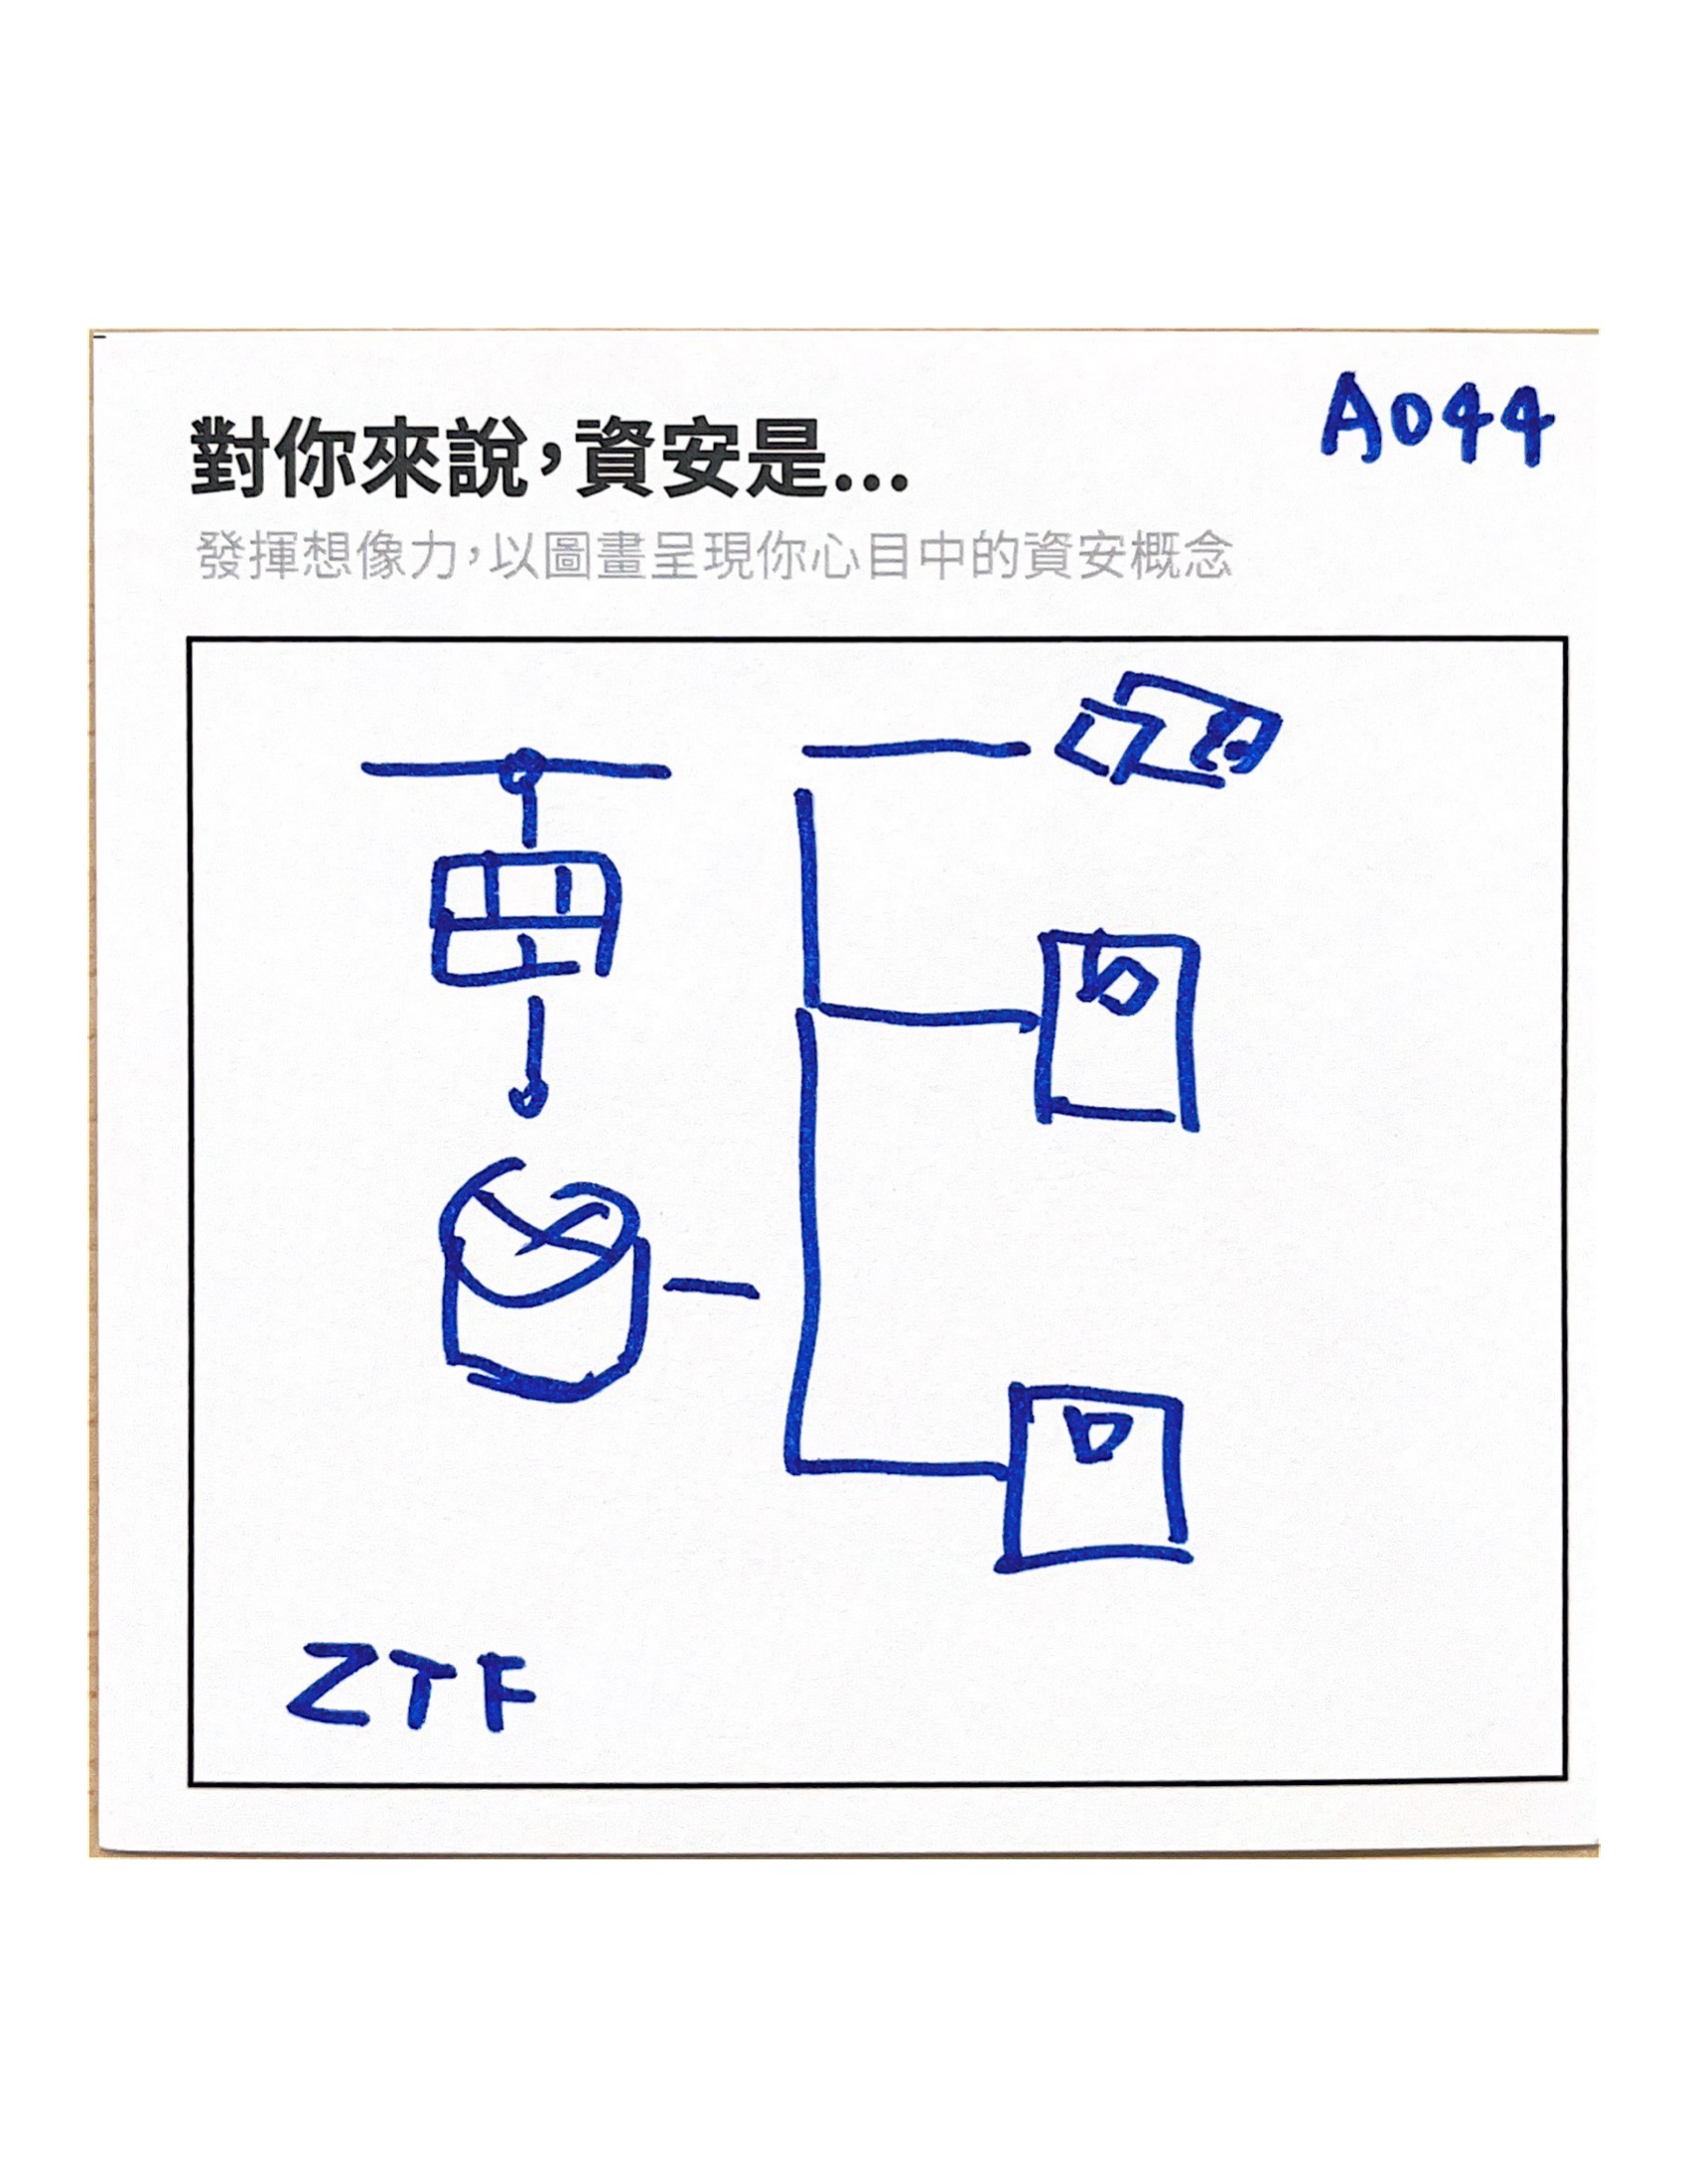 A044
對你來說，資安是...
發揮想像力，以圖畫呈現你心目中的資安概念
ZTF